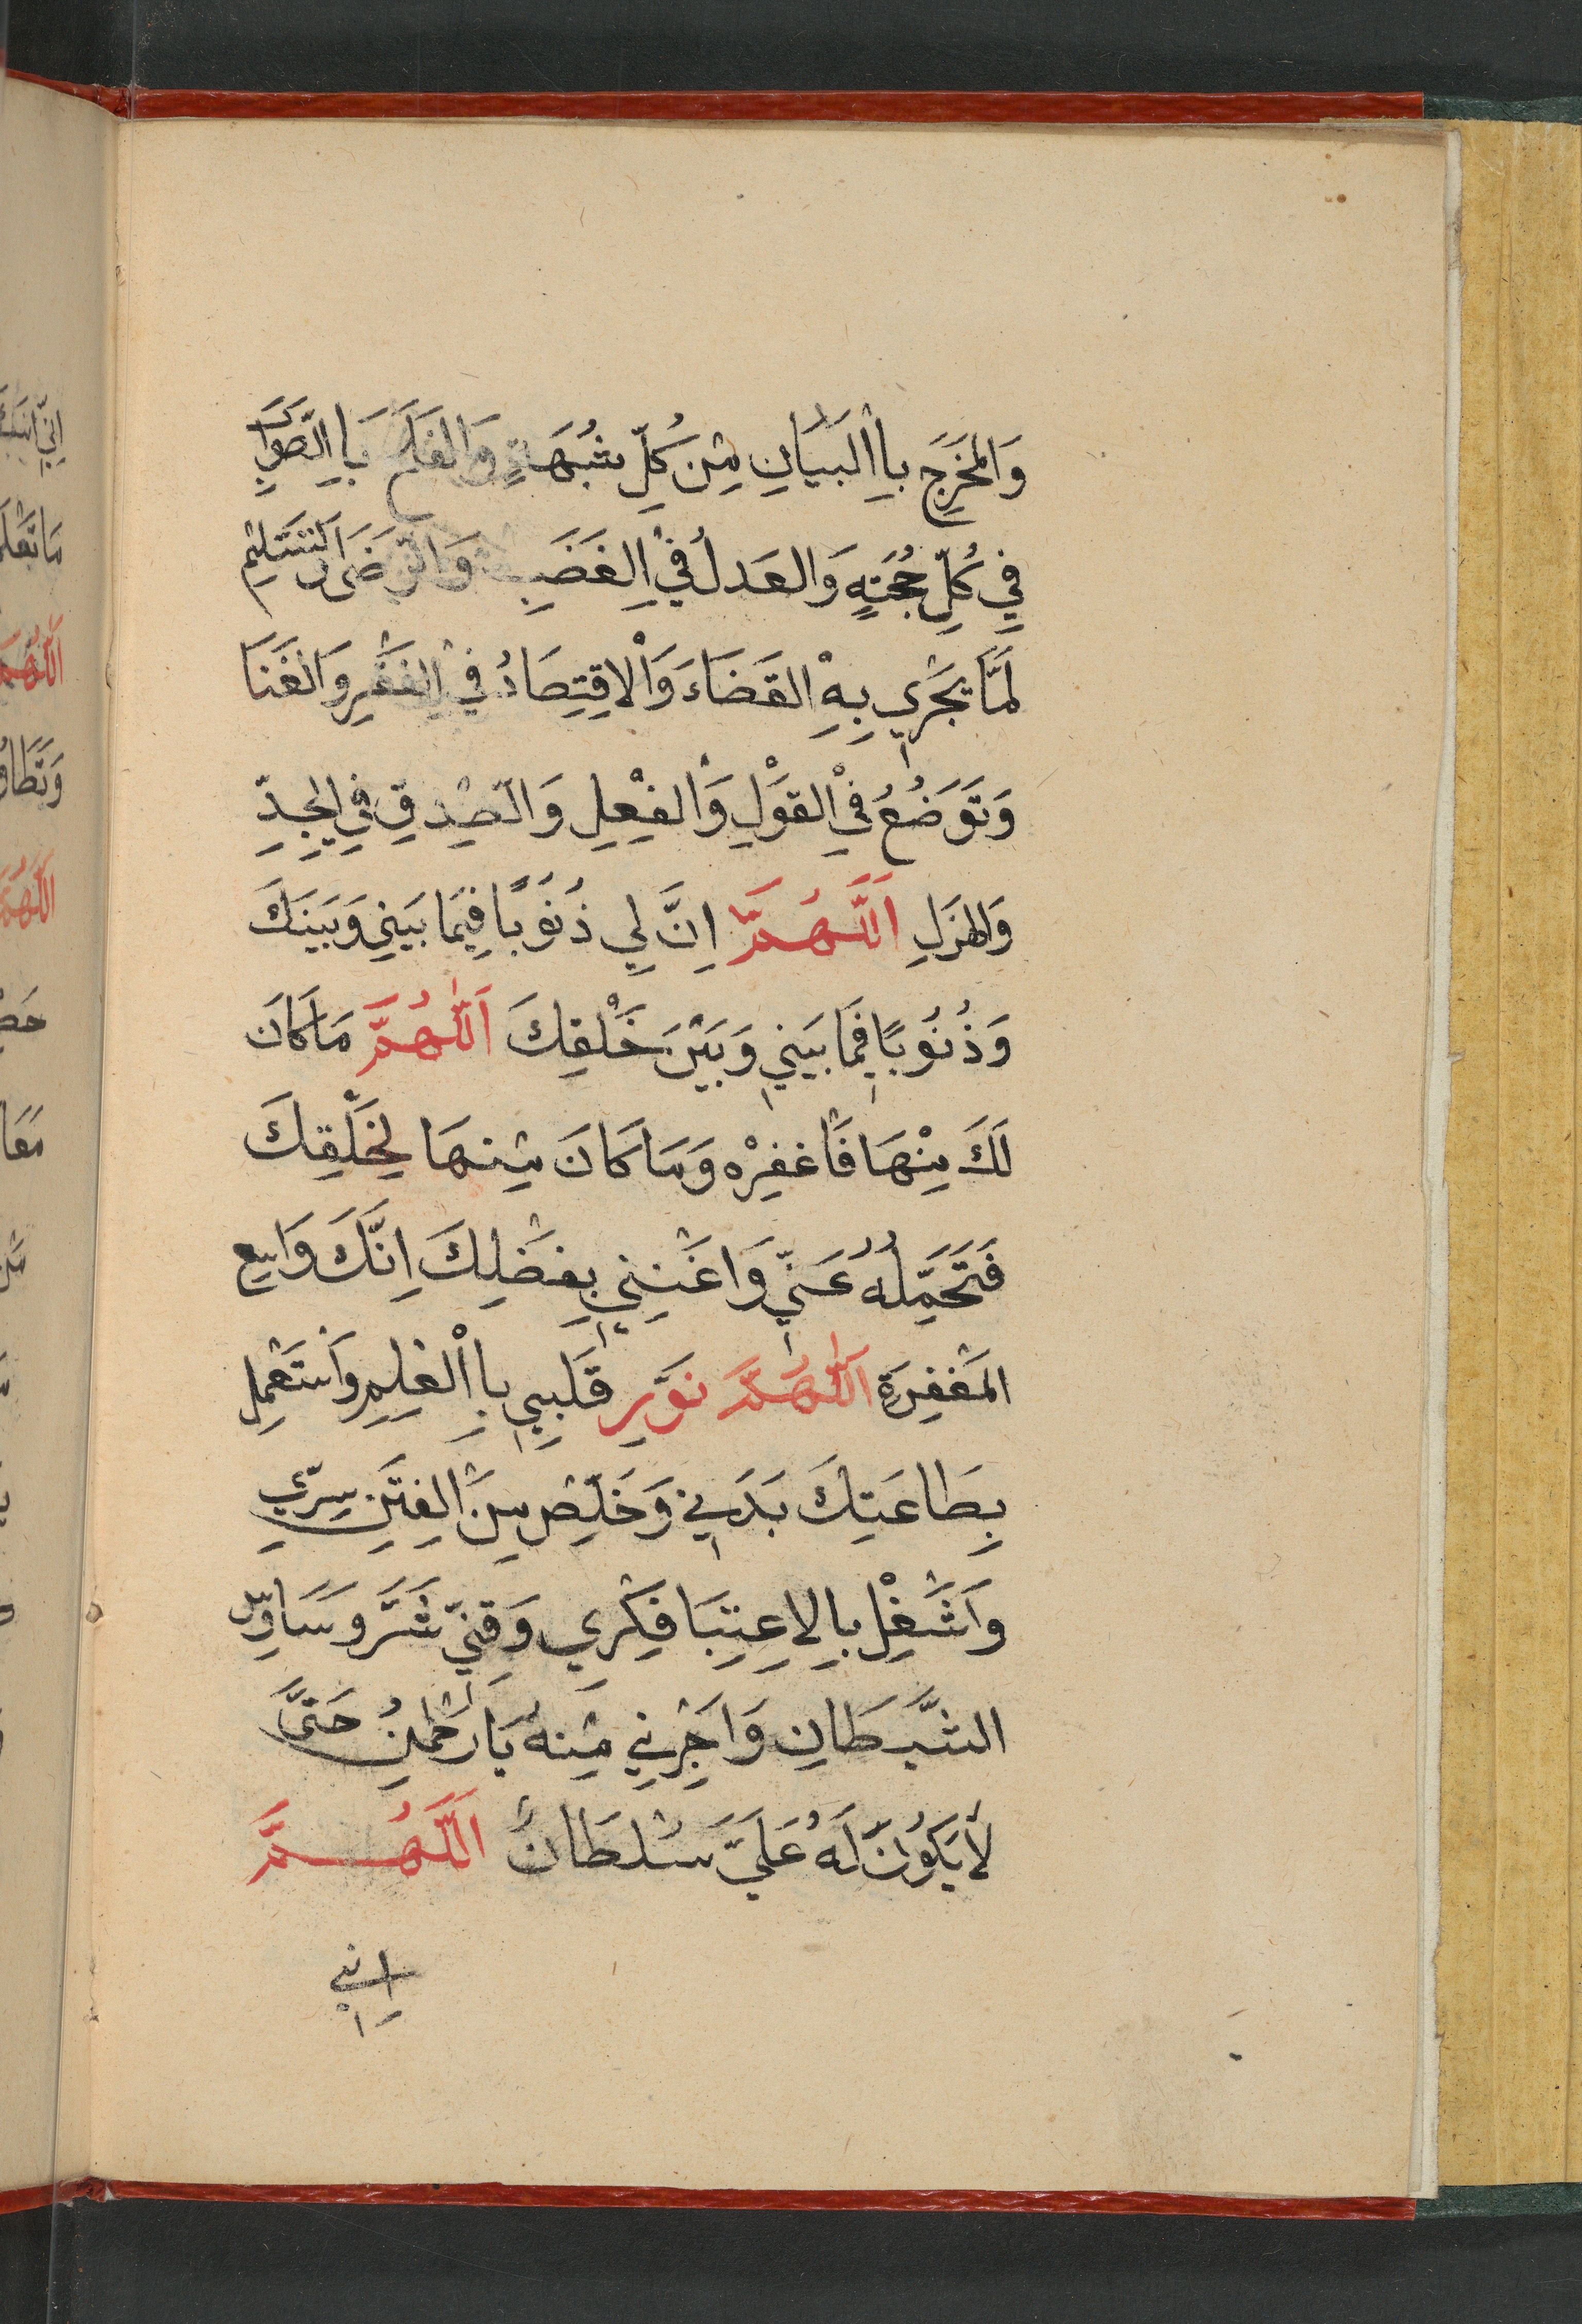 وَالمَخَرِجَ بِاالْبَيَانِ مِنْ كُلِّ شُبْهَةٍ وَالفَلَجَ بَاِ الصَّوَابِ
فِي كُلِّ حُجَّةٍ وَالعَدلُ فِيْ الِغَضَبِ وَالرِّضَى وَالتَّسْلِيْمِ
لَمَّا يَجْرِي بِهِ الْقَضَاءَ وَالْاقِتِصَادُ فِيْ الِفَقْرِ وَالغَنَا
وَتَوَضُعُ فِيْ الْقَوْلِ وَالْفِعْلِ وَالصِّدقِ فِي الِجِدِّ
وَالهَزَلِ اَللَّهُمَّ اِنَّ لِي ذُنُوْبًا فِيَما بَيَنِي وَبَينَكَ
وَذُنُوبًا فِيَما بَيَنِي وَبَيْنَ خَلْقِكَ اَللّٰهُمَّ مَا كَانَ
لَكَ مِنْهَا فَاغْفِرْه وَمَا كَانَ مِنْهَا لِخَلْقِكَ
فَتَحَمَّلْهُ عَنِّي وَاَغْنِنِي بِفَضْلِكَ اِنَّكَ وَاسِع
المَغْفِرَةِ اَللّٰهُمَّ نَوِّرِ قَلَبِيِ بِاالْعِلِمِ وَاَسْتَعْمِلِ
بِطَاعَتِكَ بَدَنِي وَخَلِّصْ مِنَ الْفِتَنِ سِرِّي
وَاَشَغِلْ بِالِاعِتِبَا فِكَرِي وَقِنِي شَرَّ وَسَاوِسِ
الشَّيطَانِ وَاَجِرْنِي مِنْهُ يَا رَحْمٰنُ حَتَّى
لَا يَكُوْنَ لَهُ عَلَيَّ سُلطَانٌ اَللَّهُمَّ
اِنِّي